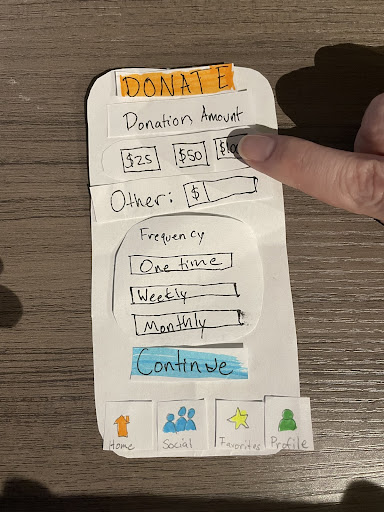 DONATE
Donation Amount
$25 $50 $100
Other: $
Frequency
One time
Weekly
Monthly
Continue
Home Social Favorites Profile